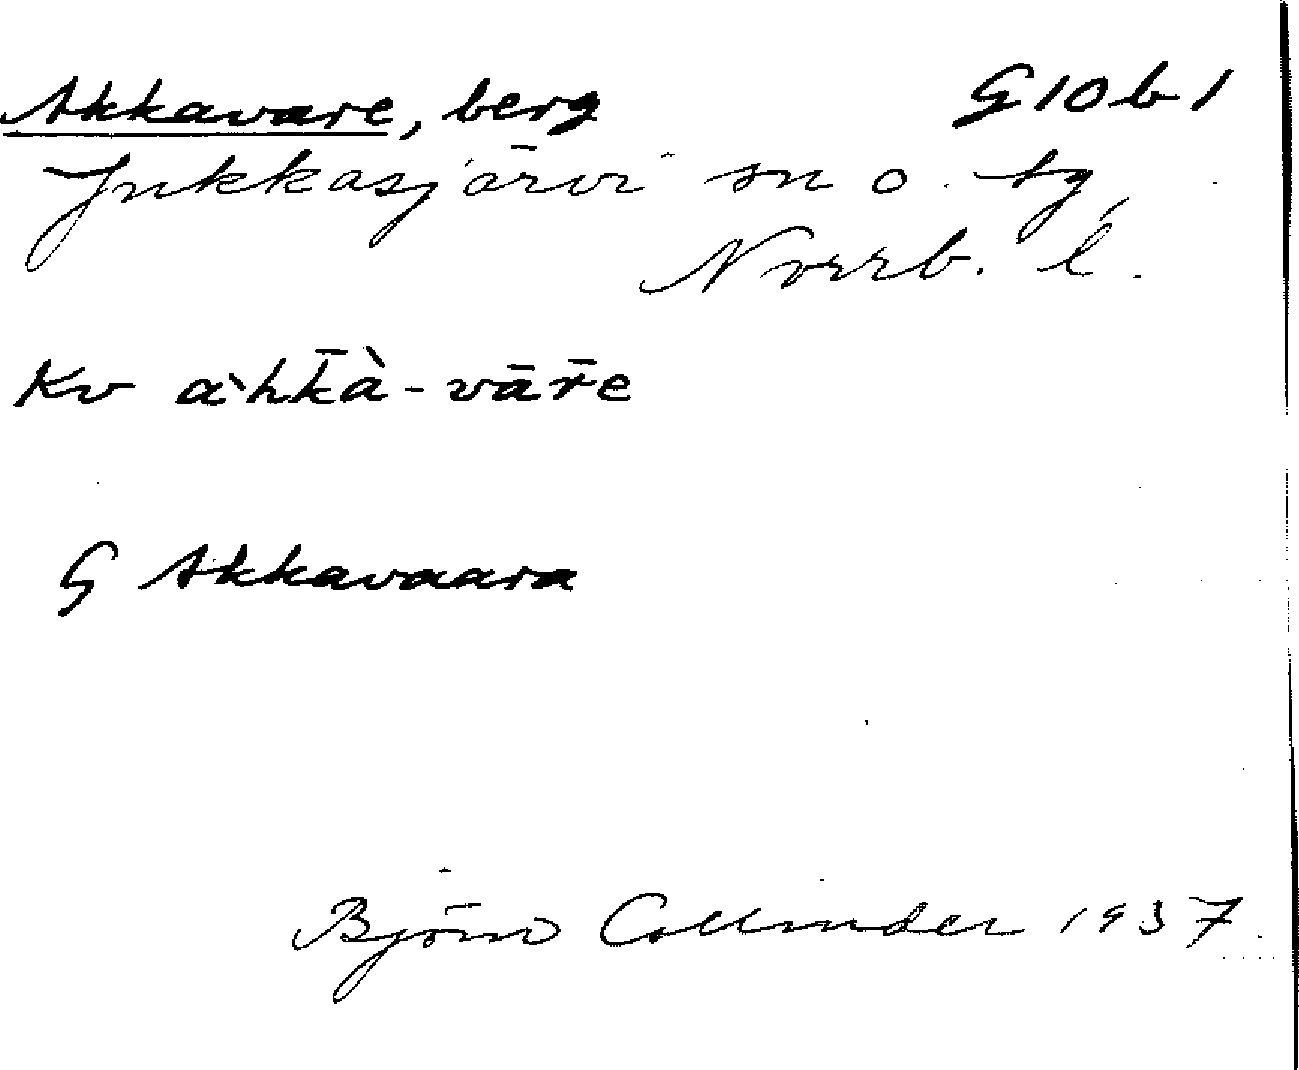 Akkavare, berg G10b1
Jukkasjärvi sn o. tg,
Norrb. l.
Kv a`hk̄à-vār̄e
G Akkavaara
Björn Collinder 1937